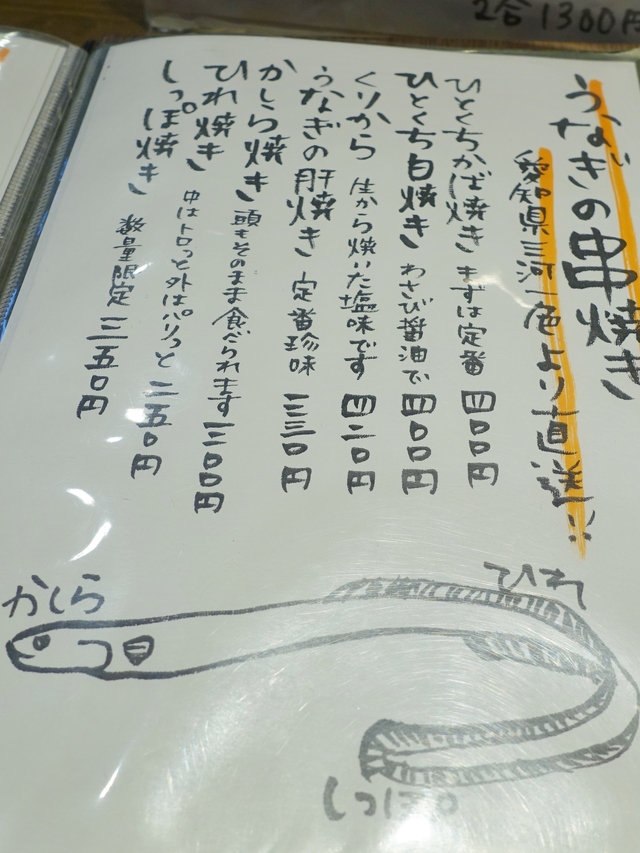 2合1300円
うなぎの串焼き
愛知県三河一色より直送!!
ひとくちかば焼き まずは定番 四〇〇円
ひとくち白焼き わさび醤油で 四〇〇円
くりから 生から焼いた塩味です 四二〇円
うなぎの肝焼き 定番珍味 三三〇円
かしら焼き 頭もそのまま食べられます 三〇〇円
ひれ焼き 中はトロっと外はパリっと 二五〇円
しっぽ焼き 数量限定 三五〇円
かしら
ひれ
しっぽ